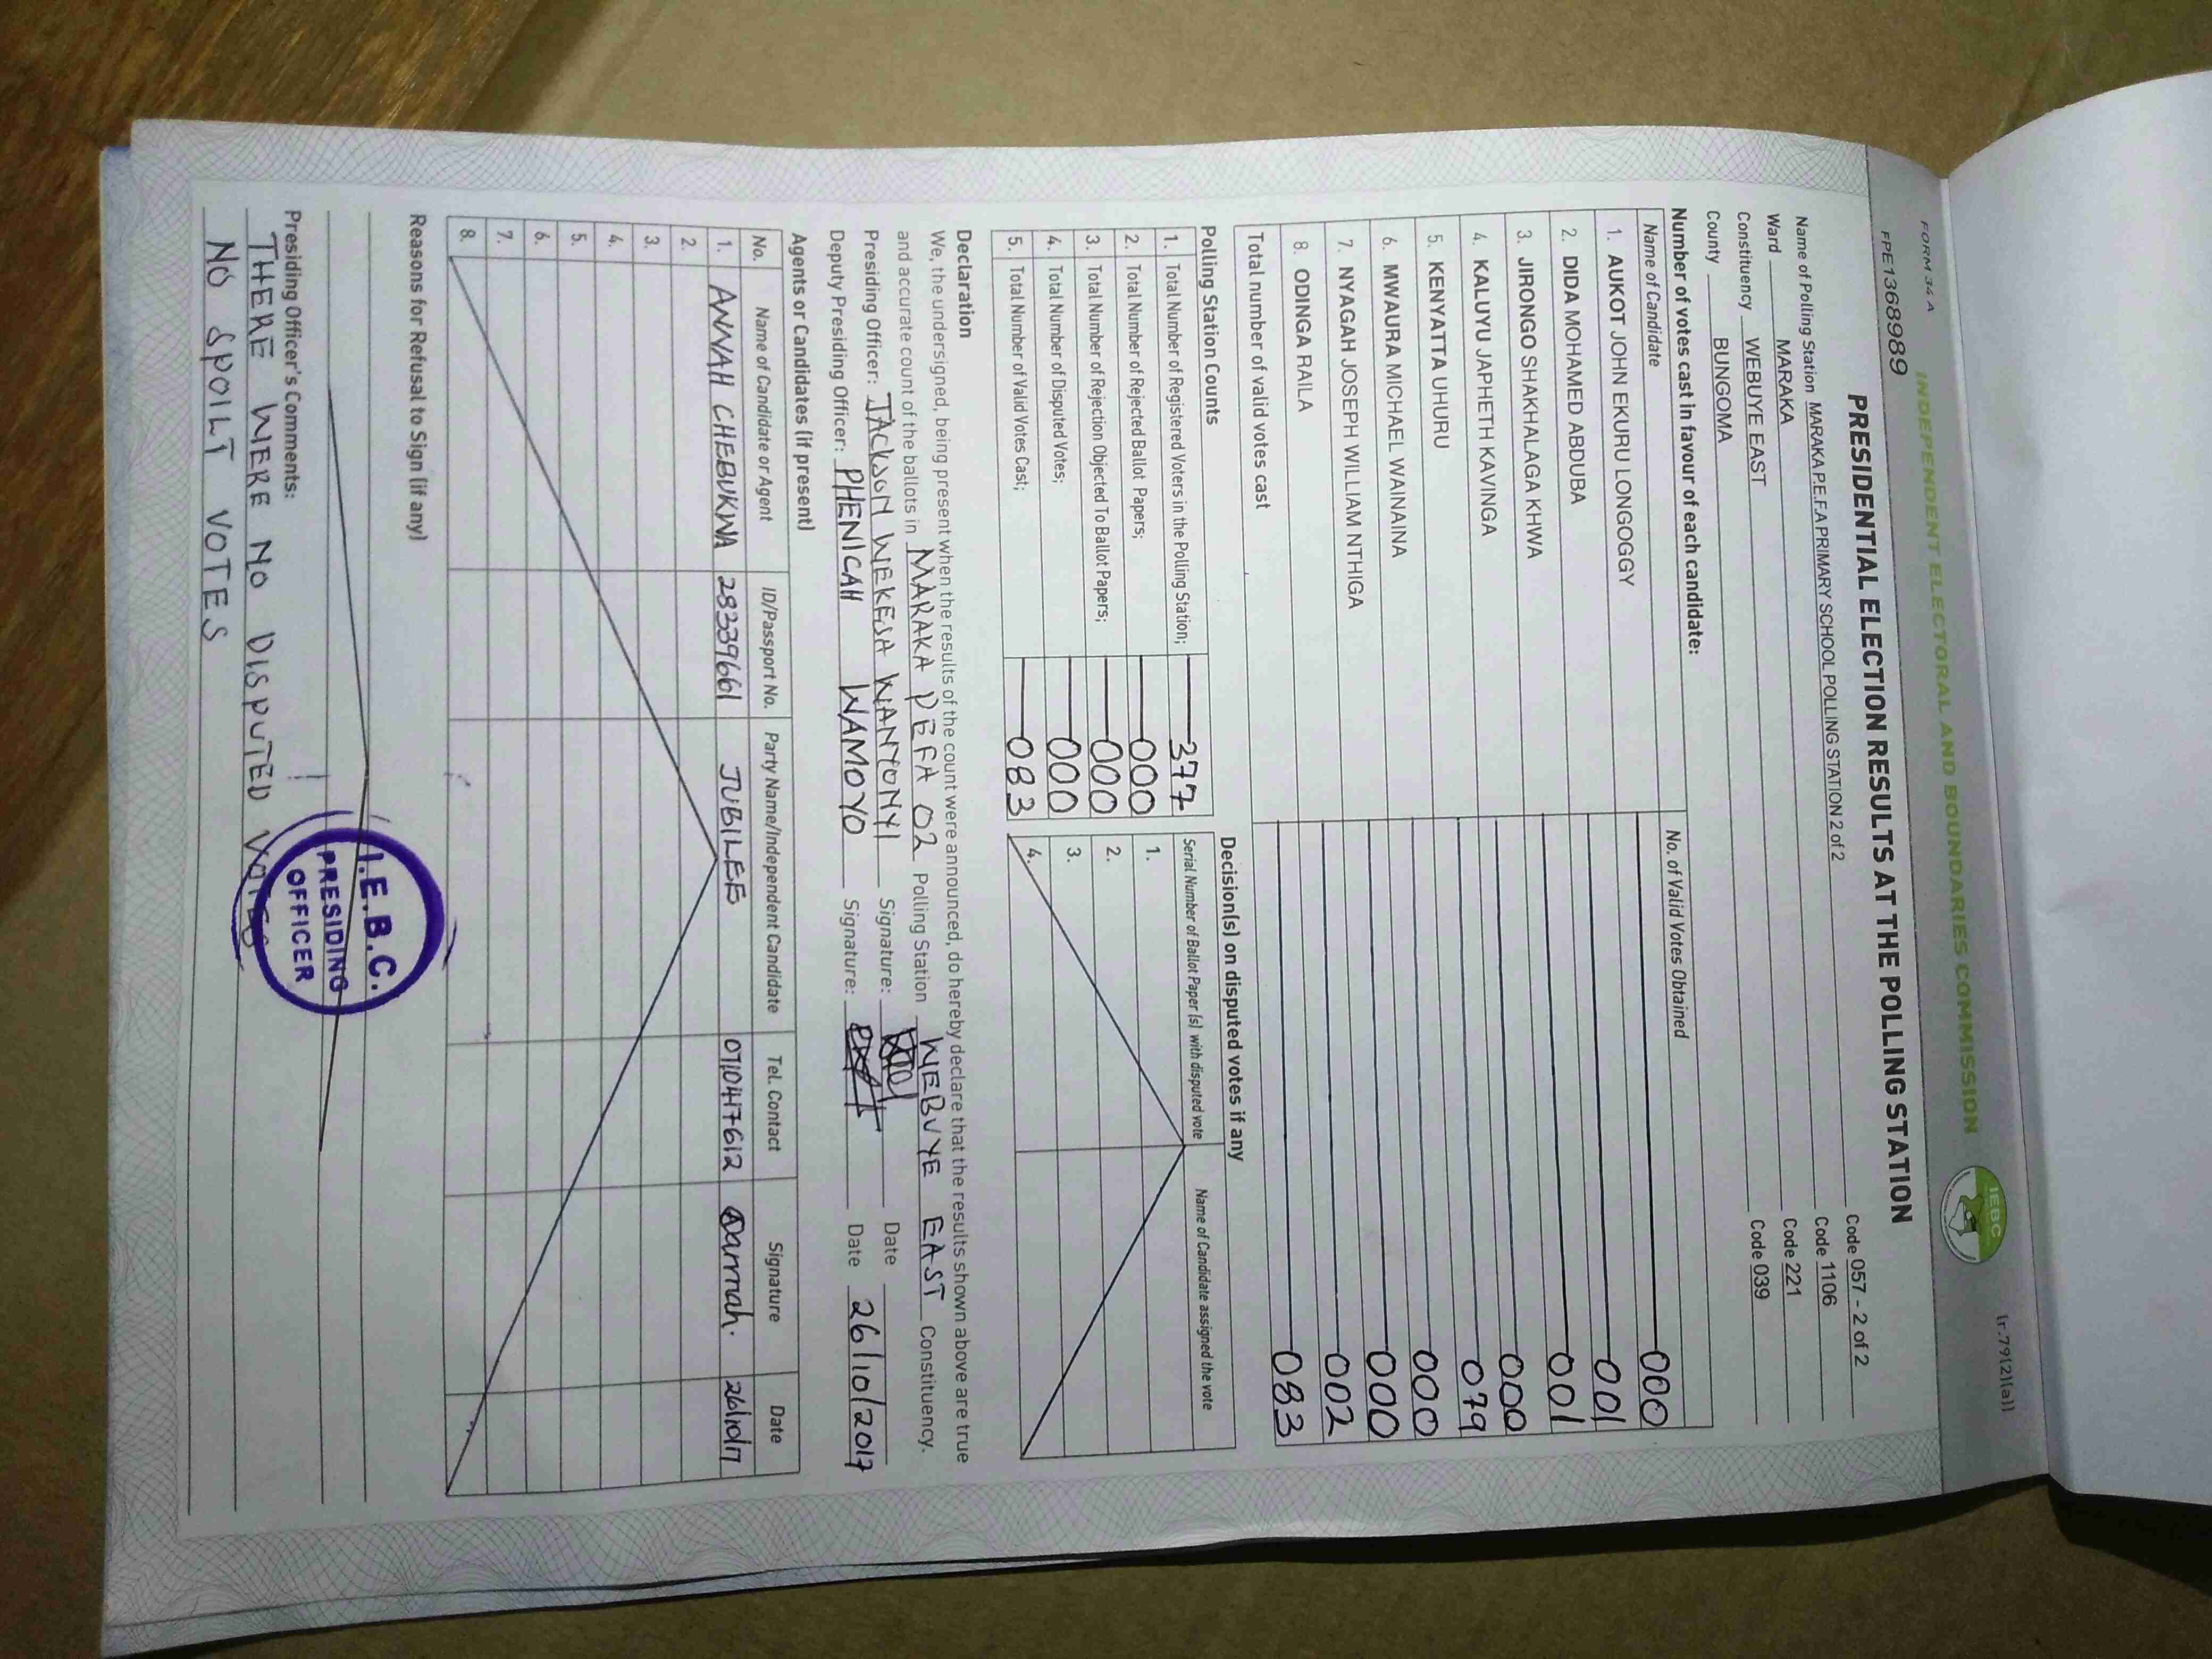 FORM 34 A
[r.79(2)(a)]
FPE1368989
INDEPENDENT ELECTORAL AND BOUNDARIES COMMISSION
IEBC
PRESIDENTIAL ELECTION RESULTS AT THE POLLING STATION
Name of Polling Station MARAKA P.E.F.A PRIMARY SCHOOL POLLING STATION 2 of 2 Code 057 - 2 of 2
Ward MARAKA Code 1106
Constituency WEBUYE EAST Code 221
County BUNGOMA Code 039
Number of votes cast in favour of each candidate:
Name of Candidate No. of Valid Votes Obtained
1. AUKOT JOHN EKURU LONGOGGY 000
2. DIDA MOHAMED ABDUBA 001
3. JIRONGO SHAKHALAGA KHWA 001
4. KALUYU JAPHETH KAVINGA 000
5. KENYATTA UHURU 079
6. MWAURA MICHAEL WAINAINA 000
7. NYAGAH JOSEPH WILLIAM NTHIGA 000
8. ODINGA RAILA 002
Total number of valid votes cast 083
Polling Station Counts
1. Total Number of Registered Voters in the Polling Station; 377
2. Total Number of Rejected Ballot Papers; 000
3. Total Number of Rejection Objected To Ballot Papers; 000
4. Total Number of Disputed Votes; 000
5. Total Number of Valid Votes Cast; 083
Decision(s) on disputed votes if any
Serial Number of Ballot Paper (s) with disputed vote Name of Candidate assigned the vote
1.
2.
3.
4.
Declaration
We, the undersigned, being present when the results of the count were announced, do hereby declare that the results shown above are true
and accurate count of the ballots in MARAKA PEFA 02 Polling Station WEBUYE EAST Constituency.
Presiding Officer: JACKSON WEKESA WANYONYI Signature: Date
Deputy Presiding Officer: PHENICAH WAMOYO Signature: Date 26/10/2017
Agents or Candidates (if present)
No. Name of Candidate or Agent ID/Passport No. Party Name/Independent Candidate Tel. Contact Signature Date
1. ANNAH CHEBUKWA 28339661 JUBILEE 26/10/17
2.
3.
4.
5.
6.
7.
8.
Reasons for Refusal to Sign (if any)
Presiding Officer's Comments:
THERE WERE NO DISPUTED VOTES
NO SPOILT VOTES
I.E.B.C.
PRESIDING
OFFICER